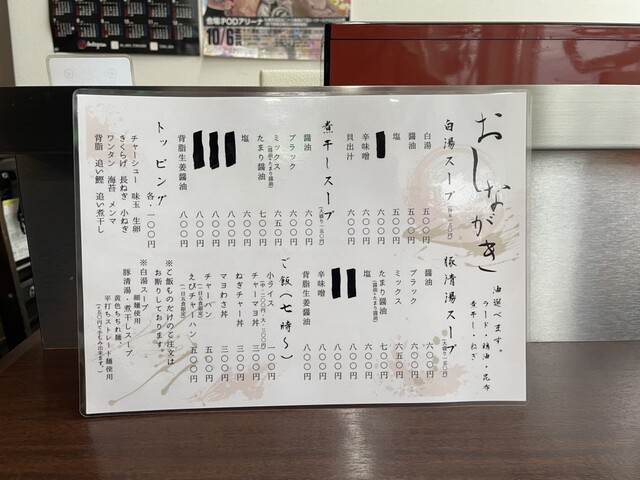 会場:PODアリーナ
10/6
おしながき
油選べます。
ラード・鶏油・昆布
煮干し・ねぎ
白湯スープ
白湯 五〇〇円
醤油 五〇〇円
塩 五五〇円
辛味噌 六〇〇円
貝出汁 六〇〇円
煮干しスープ
醤油 六〇〇円
ブラック 六〇〇円
ミックス 六五〇円
(醤油+たまり醤油)
たまり醤油 七〇〇円
塩 六〇〇円
八〇〇円
八〇〇円
八〇〇円
背脂生姜醤油 八〇〇円
トッピング 各・一〇〇円
チャーシュー 味玉 生卵
きくらげ 長ねぎ 小ねぎ
ワンタン 海苔 メンマ
背脂 追い鰹 追い煮干し
豚清湯スープ
醤油 六〇〇円
ブラック 六〇〇円
ミックス 六五〇円
(醤油+たまり醤油)
たまり醤油 七〇〇円
塩 六〇〇円
八〇〇円
八〇〇円
辛味噌 八〇〇円
背脂生姜醤油 八〇〇円
ご飯(七時〜)
小ライス 一〇〇円
チャーマヨ丼 三〇〇円
ねぎチャー丼 三〇〇円
マヨわさ丼 三〇〇円
チャーハン 五〇〇円
えびチャーハン 五〇〇円
※ご飯ものだけのご注文は
お断りしております。
※白湯スープ
細麺使用
豚清湯・煮干しスープ
黄色ちぢれ麺
平打ちストレート麺使用